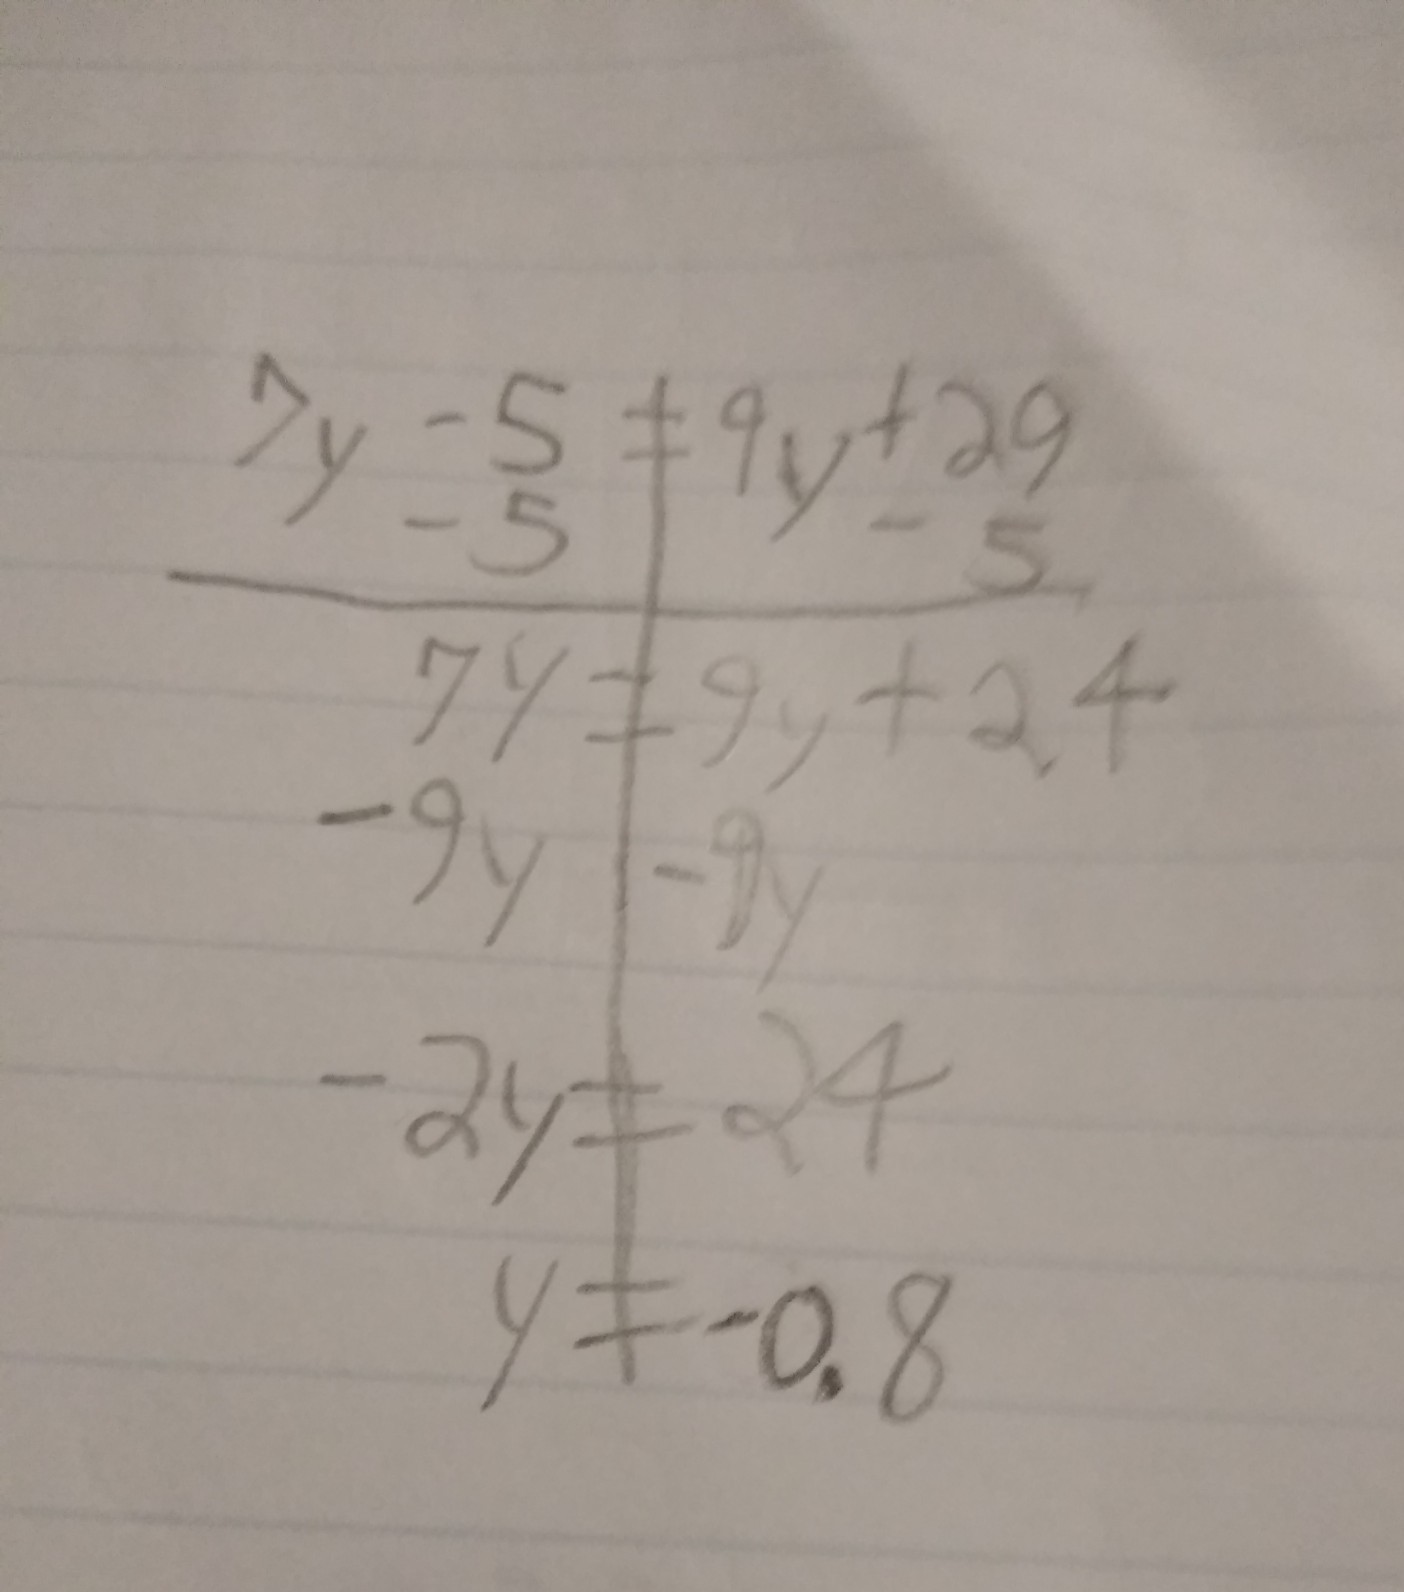 7y - 5 = 9y + 29
- 5 - 5
7y = 9y + 24
-9y -9y
-2y = 24
y = -0.8